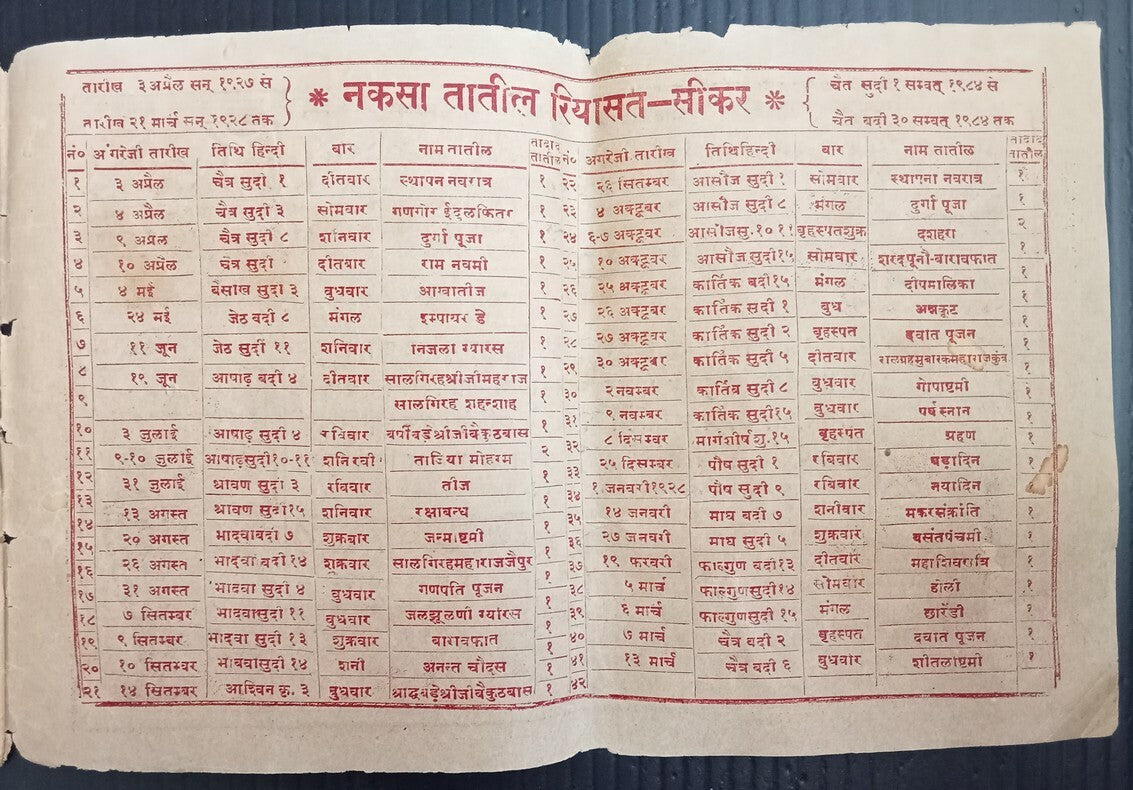 तारीख ३ अप्रैल सन् १९२७ से
तारीख २१ मार्च सन् १९२८ तक
* नकसा तातील रियासत-सीकर *
चैत सुदी १ सम्वत् १९८४ से
चैत बदी ३० सम्वत् १९८४ तक
नं० अंगरेजी तारीख तिथि हिन्दी बार नाम तातील तादाद तातील
१ ३ अप्रैल चैत्र सुदी १ दीतवार स्थापन नवरात्र १
२ ४ अप्रैल चैत्र सुदी ३ सोमवार गणगोर ईदलफितर १
३ ९ अप्रल चैत्र सुदी ८ शनिवार दुर्गा पूजा १
४ १० अप्रैल चैत्र सुदी दीतबार राम नवमी १
५ ४ मई बैसाख सुदी ३ बुधवार आखातीज १
६ २४ मई जेठ बदी ८ मंगल इम्पायर डे १
७ ११ जून जेठ सुदी ११ शनिवार निजला ग्यारस १
८ १९ जून आषाढ़ बदी ४ दीतबार सालगिरहश्रीजीमहराज १
९ सालगिरह शहन्शाह १
१० ३ जुलाई आषाढ़ सुदी ४ रविबार बर्षीबड़ेश्रीजीबैकुठबास १
११ ९-१० जुलाई आषाढ़सुदी१०-११ शनि रवी ताजिया मोहरम २
१२ ३१ जुलाई श्रावण सुदी ३ रविबार तीज १
१३ १३ अगस्त श्रावण सुदी१५ शनिवार रक्षाबन्ध १
१४ २० अगस्त भादवाबदी ७ शुक्रबार जन्माष्टमी १
१५ २६ अगस्त भादवा बदी १४ शक्रवार सालगिरहमहाराजजैपुर १
१६ ३१ अगस्त भादवा सुदी ४ बुधवार गणपति पूजन १
१७ ७ सितम्बर भादवासुदी ११ बुधवार जलझूलणी ग्यारस १
१८ ९ सितम्बर भादवा सुदी १३ शुक्रवार बारावफात १
१९ १० सितम्बर भादवासुदी १४ शनी अनन्त चौदस १
२० १४ सितम्बर आश्विन कृ. ३ बुधवार श्राद्धबड़ेश्रीजीबैकुठबास १
२१
नं० अगरेजी तारीख तिथिहिन्दी बार नाम तातील तादाद तातील
२२ २६ सितम्बर आसौज सुदी १ सोमवार स्थापना नवरात्र १
२३ ४ अक्टूबर आसौज सुदी ८ मंगल दुर्गा पूजा १
२४ ६-७ अक्टूबर आसौजसु. १० ११ बृहस्पतशुक्र दशहरा २
२५ १० अक्टूबर आसौज सुदी१५ सोमवार शरदपूनौ-बारावफात १
२६ २५ अक्टूबर कार्तिक बदी१५ मंगल दीपमालिका १
२७ २६ अक्टूबर कार्तिक सुदी १ बुध अन्नकूट १
२८ २७ अक्टूबर कार्तिक सुदी २ बृहस्पत दवात पूजन १
२९ ३० अक्टूबर कार्तिक सुदी ५ दीतवार १
३० २ नवम्बर कार्तिक सुदी ८ बुधवार गोपाष्टमी १
३१ ९ नवम्बर कार्तिक सुदी१५ बुधवार पर्व स्नान १
३२ ८ दिसम्बर मार्गशीर्ष शु.१५ बृहस्पत ग्रहण १
३३ २५ दिसम्बर पौष सुदी १ रविबार बड़ादिन १
३४ १ जनवरी१९२८ पौष सुदी ९ रविबार नयादिन १
३५ १४ जनवरी माघ बदी ७ शनीवार मकरसंक्रांति १
३६ २७ जनवरी माघ सुदी ५ शुक्रवार बसंतपंचमी १
३७ १९ फरवरी फाल्गुण बदी१३ दीतवार महाशिवरात्रि १
३८ ५ मार्च फाल्गुणसुदी१४ सोमवार होली १
३९ ६ मार्च फाल्गुणसुदी १५ मंगल छारेंडी १
४० ७ मार्च चैत्र बदी २ बृहस्पत दवात पूजन १
४१ १३ मार्च चैत्र बदी ६ बुधवार शीतलाष्टमी १
४२